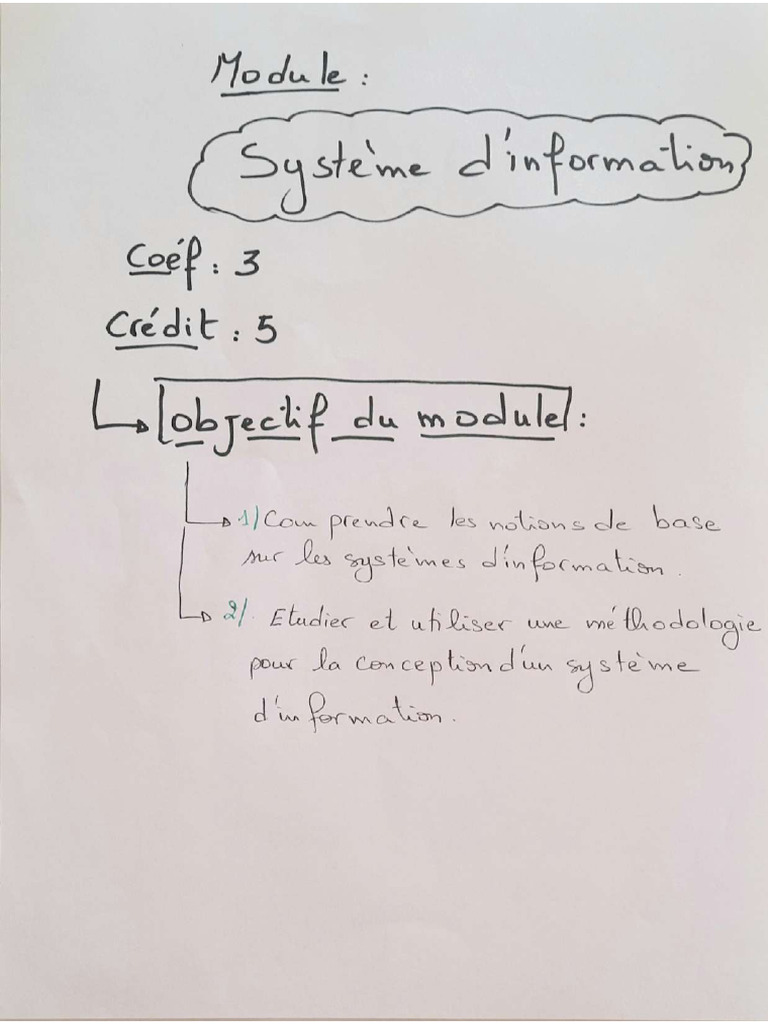 Module :
Système d'information
Coéf : 3
Crédit : 5
objectif du module :
1/ Comprendre les notions de base
sur les systèmes d'information.
2/. Etudier et utiliser une méthodologie
pour la conception d'un système
d'information.